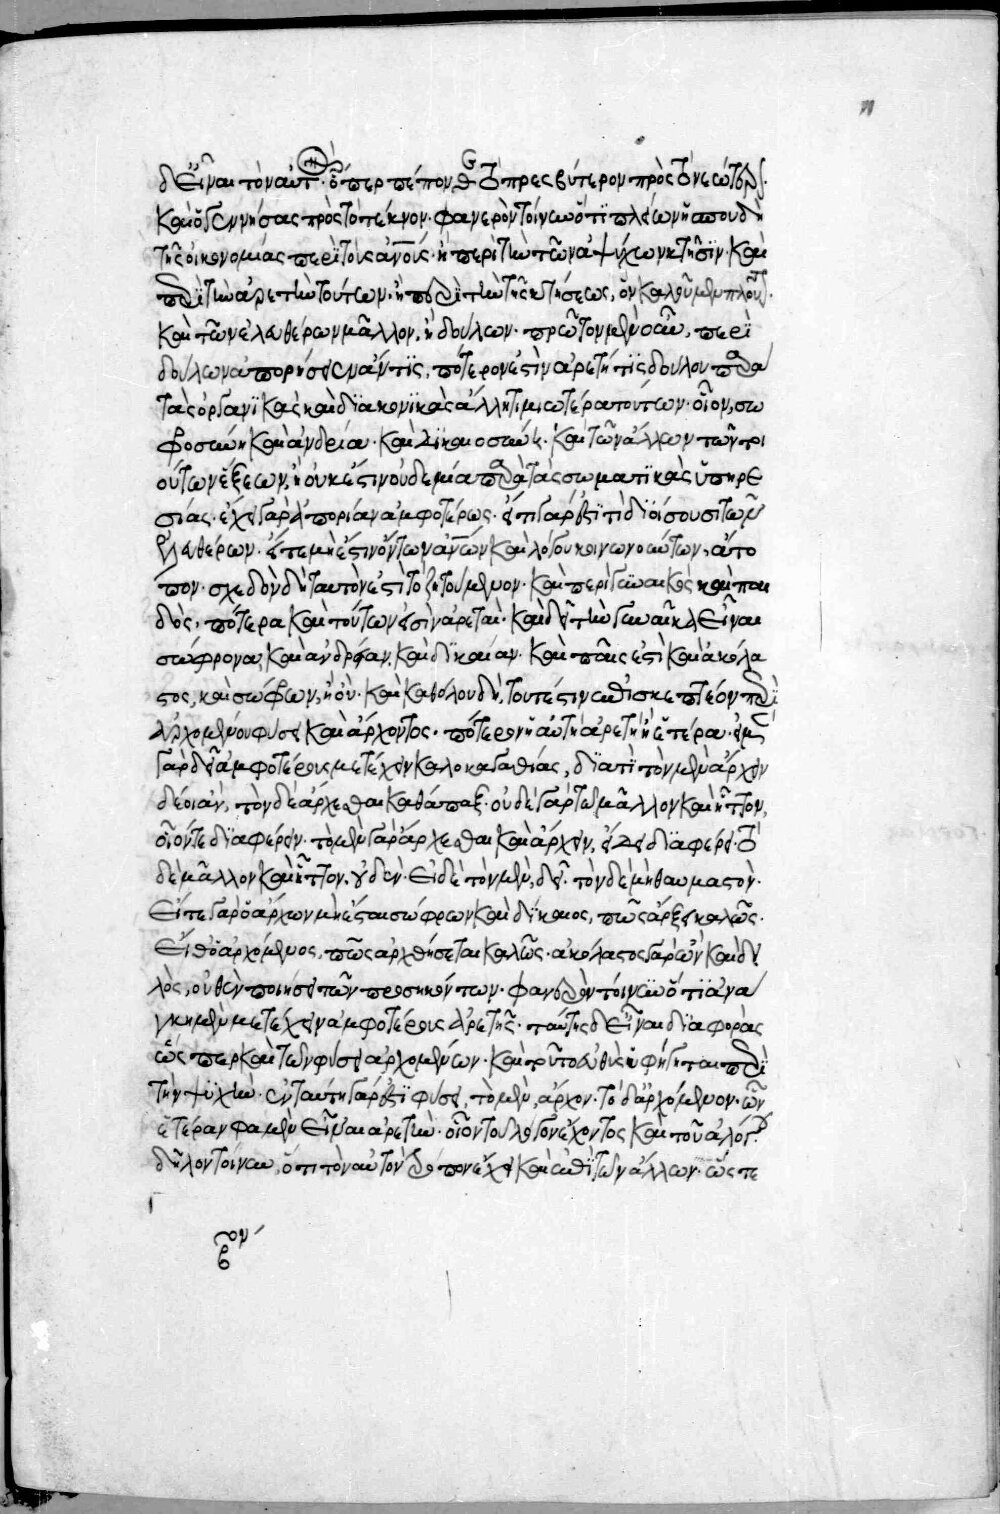 δ εἶναι τὸν αὐτ. ὅπερ πέπονθε τὸ πρεσβύτερον πρὸς τὸ νεώτερον.
καὶ ὁ γεννήσας πρὸς τὸ τέκνον. φανερὸν τοίνυν ὅτι πλείων ἡ σπουδὴ
τῆς οἰκονομίας περὶ τοὺς ἀνους. ἢ περὶ τὴν τῶν ἀψύχων κτῆσιν. καὶ
περὶ τὴν ἀρετὴν τούτων. ἢ περὶ τὴν τῆς κτήσεως, ὃν καλοῦμεν πλοῦτον.
καὶ τῶν ἐλευθέρων μᾶλλον, ἢ δούλων. πρῶτον μὲν οὖν, περὶ
δούλων ἀπορήσειεν ἄν τις, πότερον ἐστὶν ἀρετή τις δούλου παρὰ
τὰς ὀργανικὰς καὶ διακονικὰς ἄλλη τιμιωτέρα τούτων. οἷον, σω
φροσύνη καὶ ἀνδρεία. καὶ δικαιοσύνη. καὶ τῶν ἄλλων τῶν τοι
ούτων ἕξεων, ἢ οὐκ ἔστιν οὐδεμία παρὰ τὰς σωματικὰς ὑπηρε
σίας. ἔχει γὰρ ἀπορίαν ἀμφοτέρως. εἴτε γὰρ ἐστὶ τὶ διοίσουσι τῶν
ἐλευθέρων. εἴτε μή ἐστιν ὄντων ἀνων καὶ λόγου κοινωνούντων, ἄτο
πον. σχεδὸν δὴ ταυτὸν ἐστὶ τὸ ζητούμενον. καὶ περὶ γυναικὸς καὶ παι
δὸς, πότερα καὶ τούτων εἰσὶν ἀρεταὶ. καὶ δεῖ τὴν γυναῖκα εἶναι
σώφρονα, καὶ ἀνδρείαν, καὶ δικαίαν. καὶ παῖς ἐστὶ καὶ ἀκόλα
στος, καὶ σώφρων, ἢ οὐ. καὶ καθόλου δὴ, τοῦτ' ἐστὶν ἐπισκεπτέον περὶ
ἀρχομένου φύσει καὶ ἄρχοντος. πότερον ἡ αὐτὴ ἀρετὴ ἢ ἑτέρα. εἰ μὲν
γὰρ δεῖ ἀμφοτέρους μετέχειν καλοκαγαθίας, διατὶ τὸν μὲν ἄρχειν
δέοι ἂν, τὸν δὲ ἄρχεσθαι καθάπαξ. οὐδὲ γὰρ τῷ μᾶλλον καὶ ἧττον,
οἷόν τε διαφέρειν. τὸ μὲν γὰρ ἄρχεσθαι καὶ ἄρχειν, εἴδει διαφέρει. τὸ
δὲ μᾶλλον καὶ ἧττον, οὐδὲν. εἰ δὲ τὸν μὲν, δεῖ. τὸν δὲ μὴ θαυμαστὸν.
εἴτε γὰρ ὁ ἄρχων μὴ ἔσται σώφρων καὶ δίκαιος, πῶς ἄρξει καλῶς.
εἴθ' ὁ ἀρχόμενος, πῶς ἀρχθήσεται καλῶς. ἀκόλαστος γὰρ ὢν καὶ δει
λὸς, οὐθὲν ποιήσει τῶν προσηκόντων. φανερὸν τοίνυν ὅτι ἀνά
γκη μὲν μετέχειν ἀμφοτέρους ἀρετῆς. ταύτης δ' εἶναι διαφορὰς
ὥσπερ καὶ τῶν φύσει ἀρχομένων. καὶ τοῦτο εὐθὺς ὑφήγηται περὶ
τὴν ψυχὴν. ἐν ταύτῃ γὰρ ἐστὶ φύσει, τὸ μὲν, ἄρχον. τὸ δ' ἀρχόμενον. ὧν
ἑτέραν φαμὲν εἶναι ἀρετὴν. οἷον τοῦ λόγον ἔχοντος καὶ τοῦ ἀλόγου.
δῆλον τοίνυν, ὅτι τὸν αὐτὸν τρόπον ἔχει καὶ ἐπὶ τῶν ἄλλων. ὥστε